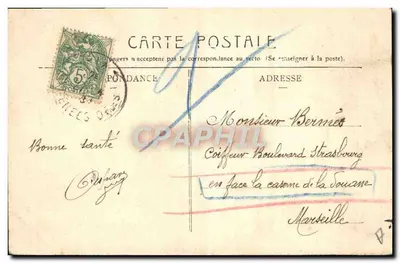 CARTE POSTALE
n'acceptent pas la correspondance au recto (Se renseigner à la poste).
PONDANCE
ADRESSE
5
CPARAMA
Monsieur Bermés
Coiffeur Boulevard Strasbourg
en face la caserne de la Douane
Marseille
Bonne santé